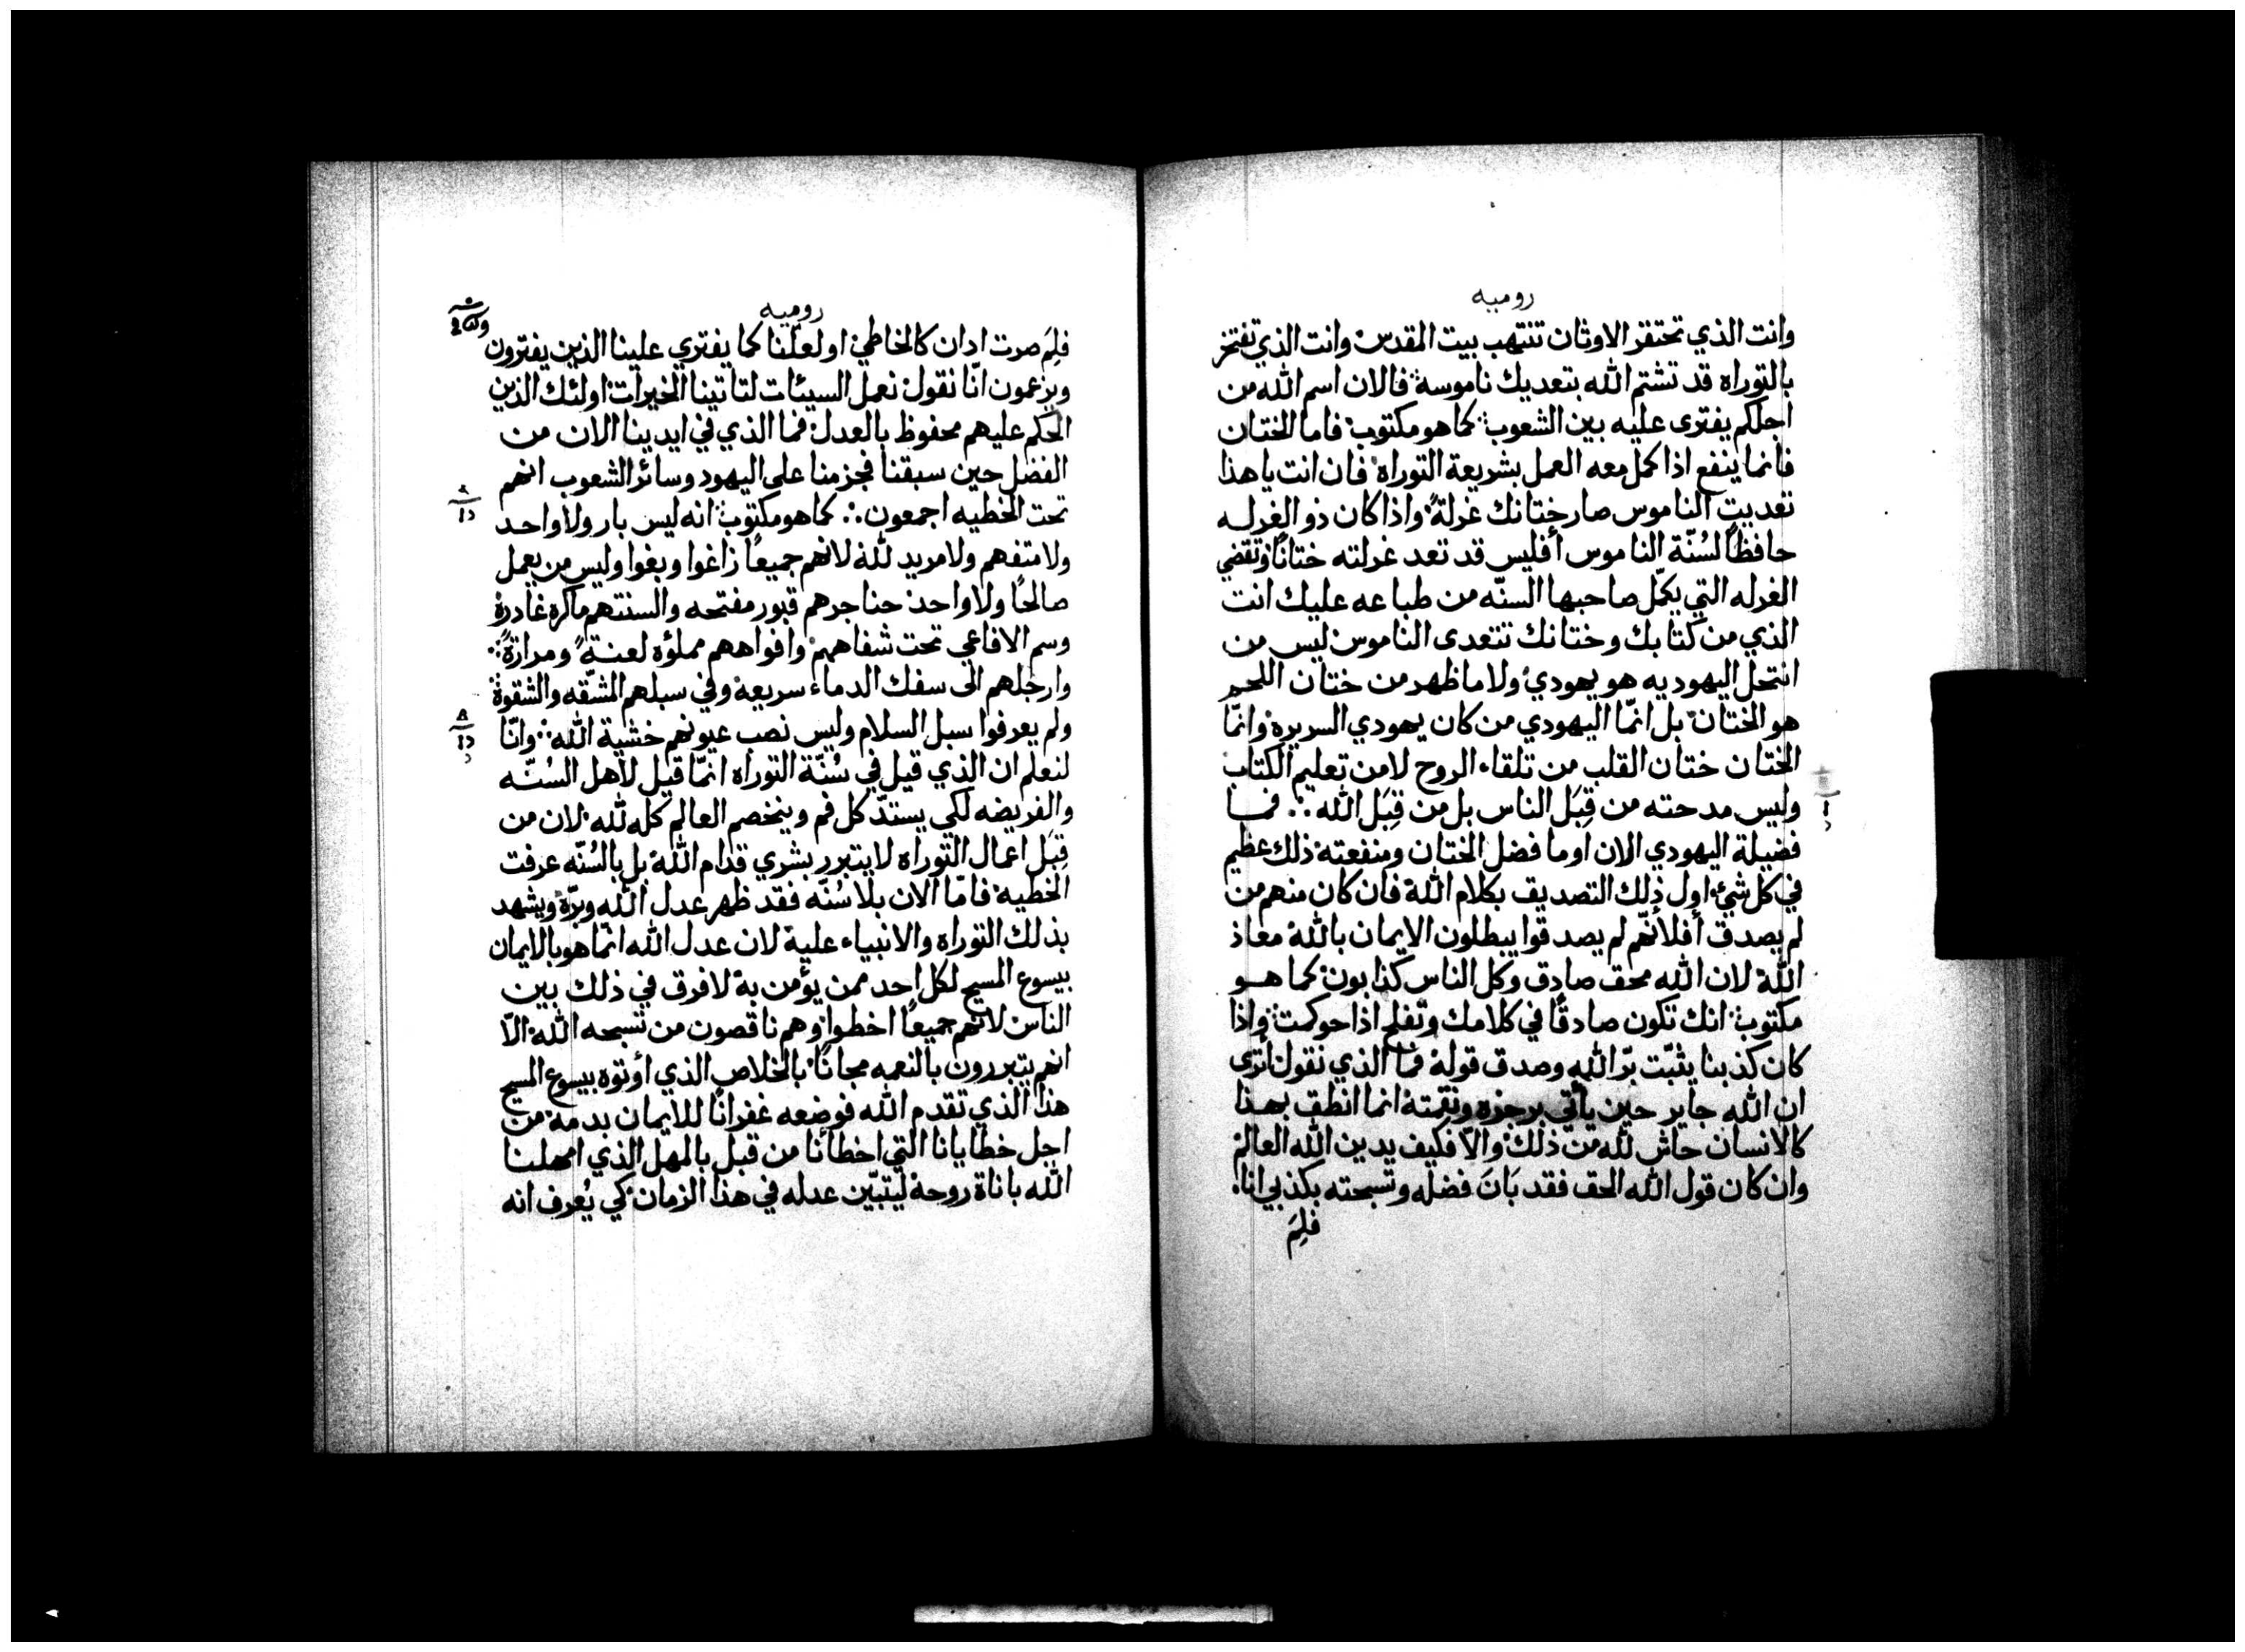 روميه
وانت الذي تحتقر الاوثان تنتهب بيت المقدس وانت الذي تفتخر
بالتوراه قد تشتم الله بتعديك ناموسه فالان اسم الله من
اجلكم يفترى عليه بين الشعوب كما هو مكتوب فاما الختان
فانما ينفع اذا كمل معه العمل بشريعة التوراه فان انت يا هذا
تعديت الناموس صار ختانك غرلةً واذا كان ذو الغرله
حافظًا لسُنّة الناموس أفليس قد تعد غرلته ختانًا وتقضي
الغرله التي يكمّل صاحبها السنّه من طباعه عليك انت
الذي من كتابك وختانك تتعدى الناموس ليس من
انتحل اليهوديه هو يهودي ولا ما ظهر من ختان اللحم
هو الختان بل انمّا اليهودي من كان يهودي السريره وانمّا
الختان ختان القلب من تلقاء الروح لا من تعليم الكتاب
وليس مدحته من قِبَل الناس بل من قِبَل الله ∴ فما
فضيلة اليهودي الان اوما فضل الختان ومنفعته ذلك عظيم
في كل شيء اول ذلك التصديق بكلام الله فان كان منهم من
لم يصدق أفلأنّهم لم يصدقوا يبطلون الايمان بالله معاذ
الله لان الله محق صادق وكل الناس كذابون كما هو
مكتوب انك تكون صادقًا في كلامك وتفلح اذا حوكمت واذا
كان كذبنا يثبّت برّ الله وصدق قوله فما الذي نقول أترى
ان الله جاير حين يأتي برجزه ونقمته انما انطق بهذا
كالانسان حاش لله من ذلك والاّ فكيف يدين الله العالم
وان كان قول الله الحق فقد بَانَ فضله وتسبحته بكذبي انا
فلِمَ
روميه
فلِمَ صرت ادان كالخاطي او لعلنا كما يفتري علينا الذين يفترون
ويزعمون انّا نقول نعمل السيئات لتاتينا الخيرات اولئك الذين
الحكم عليهم محفوظ بالعدل فما الذي في ايدينا الان من
الفضل حين سبقنا فجزمنا على اليهود وسائر الشعوب انهم
تحت الخطيه اجمعون ∴ كما هو مكتوب انه ليس بار ولا واحد
ولا متفهم ولا مريد لله لانهم جميعًا زاغوا وبغوا وليس من يعمل
صالحًا ولا واحد حناجرهم قبور مفتحه والسنتهم ماكره غادرة
وسم الافاعي تحت شفاههم وافواههم مملؤه لعنةً ومرارةً
وارجلهم الى سفك الدماء سريعه وفي سبلهم المشقّه والشقوة
ولم يعرفوا سبل السلام وليس نصب عيونهم خشية الله وانّا
لنعلم ان الذي قيل في سُنّة التوراه انمّا قيل لاهل السُنّه
والفريضه لكي يستدّ كل فم وينخصم العالم كله لله لان من
قِبَل اعمال التوراه لا يتبرر بشري قدام الله بل بالسُنّه عرفت
الخطيه فامّا الان بلا سُنّه فقد ظهر عدل الله وبرّه ويشهد
بذلك التوراه والانبياء عليه لان عدل الله انمّا هو بالايمان
بيسوع المسيح لكل احد ممن يؤمن به لا فرق في ذلك بين
الناس لانهم جميعًا اخطوا وهم ناقصون من تسبحه الله الاّ
انهم يتبررون بالنعمه مجانًا بالخلاص الذي أوتوه بيسوع المسيح
هذا الذي تقدم الله فوضعه غفرانًا للايمان بدمه من
اجل خطايانا التي اخطأنا من قبل بالمهل الذي امهلنا
الله باناة روحه ليتبيّن عدله في هذا الزمان كي يُعرف انه